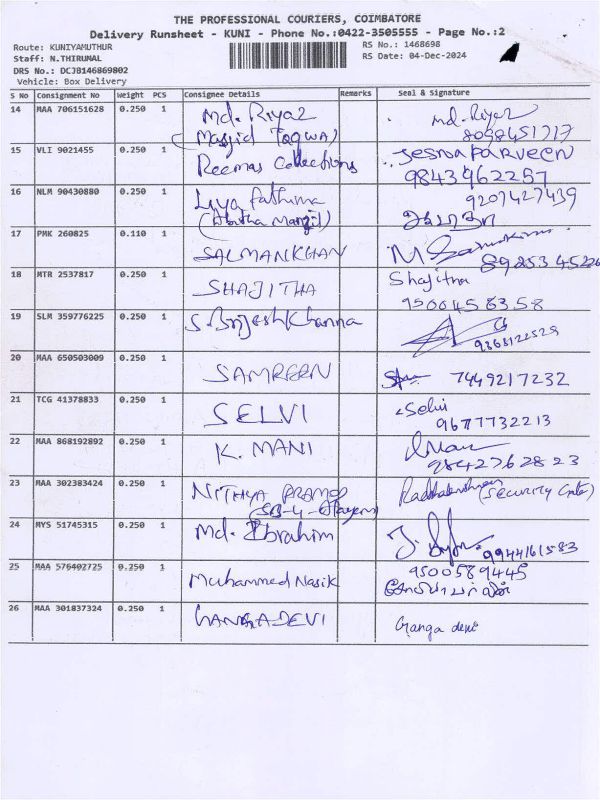 THE PROFESSIONAL COURIERS, COIMBATORE
Delivery Runsheet - KUNI - Phone No.:0422-3505555 - Page No.:2
Route: KUNIYAMUTHUR
RS No.: 1468698
Staff: N.THIRUMAL
RS Date: 04-Dec-2024
DRS No.: DCJB146869802
Vehicle: Box Delivery
S No Consignment No Weight PCS Consignee Details Remarks Seal & Signature
14 MAA 706151628 0.250 1 Md. Riyaz Md. Riyaz
(Masjid Taqwa) 8098451717
15 VLI 9021455 0.250 1 Reemas Collections Jesna Parveen
9843962257
16 NLM 90430880 0.250 1 Liya fathima 9207427439
17 PMK 260825 0.110 1 SALMANKHAN 8925345226
18 MTR 2537817 0.250 1 SHAJITHA Shajitha
9500458358
19 SLM 359776225 0.250 1 S. Brijesh Khanna
9363122529
20 MAA 650503009 0.250 1 SAMREEN 7449217232
21 TCG 41378833 0.250 1 SELVI Selvi
9677732213
22 MAA 868192892 0.250 1 K. MANI Mani
9842762823
23 MAA 302383424 0.250 1 NITHYA PRAMOD (Security Gate)
24 MYS 51745315 0.250 1 Md. Ibrahim 9944161583
25 MAA 576402725 0.250 1 Muhammed Nasik 9500589445
26 MAA 301837324 0.250 1 GANGADEVI Ganga devi